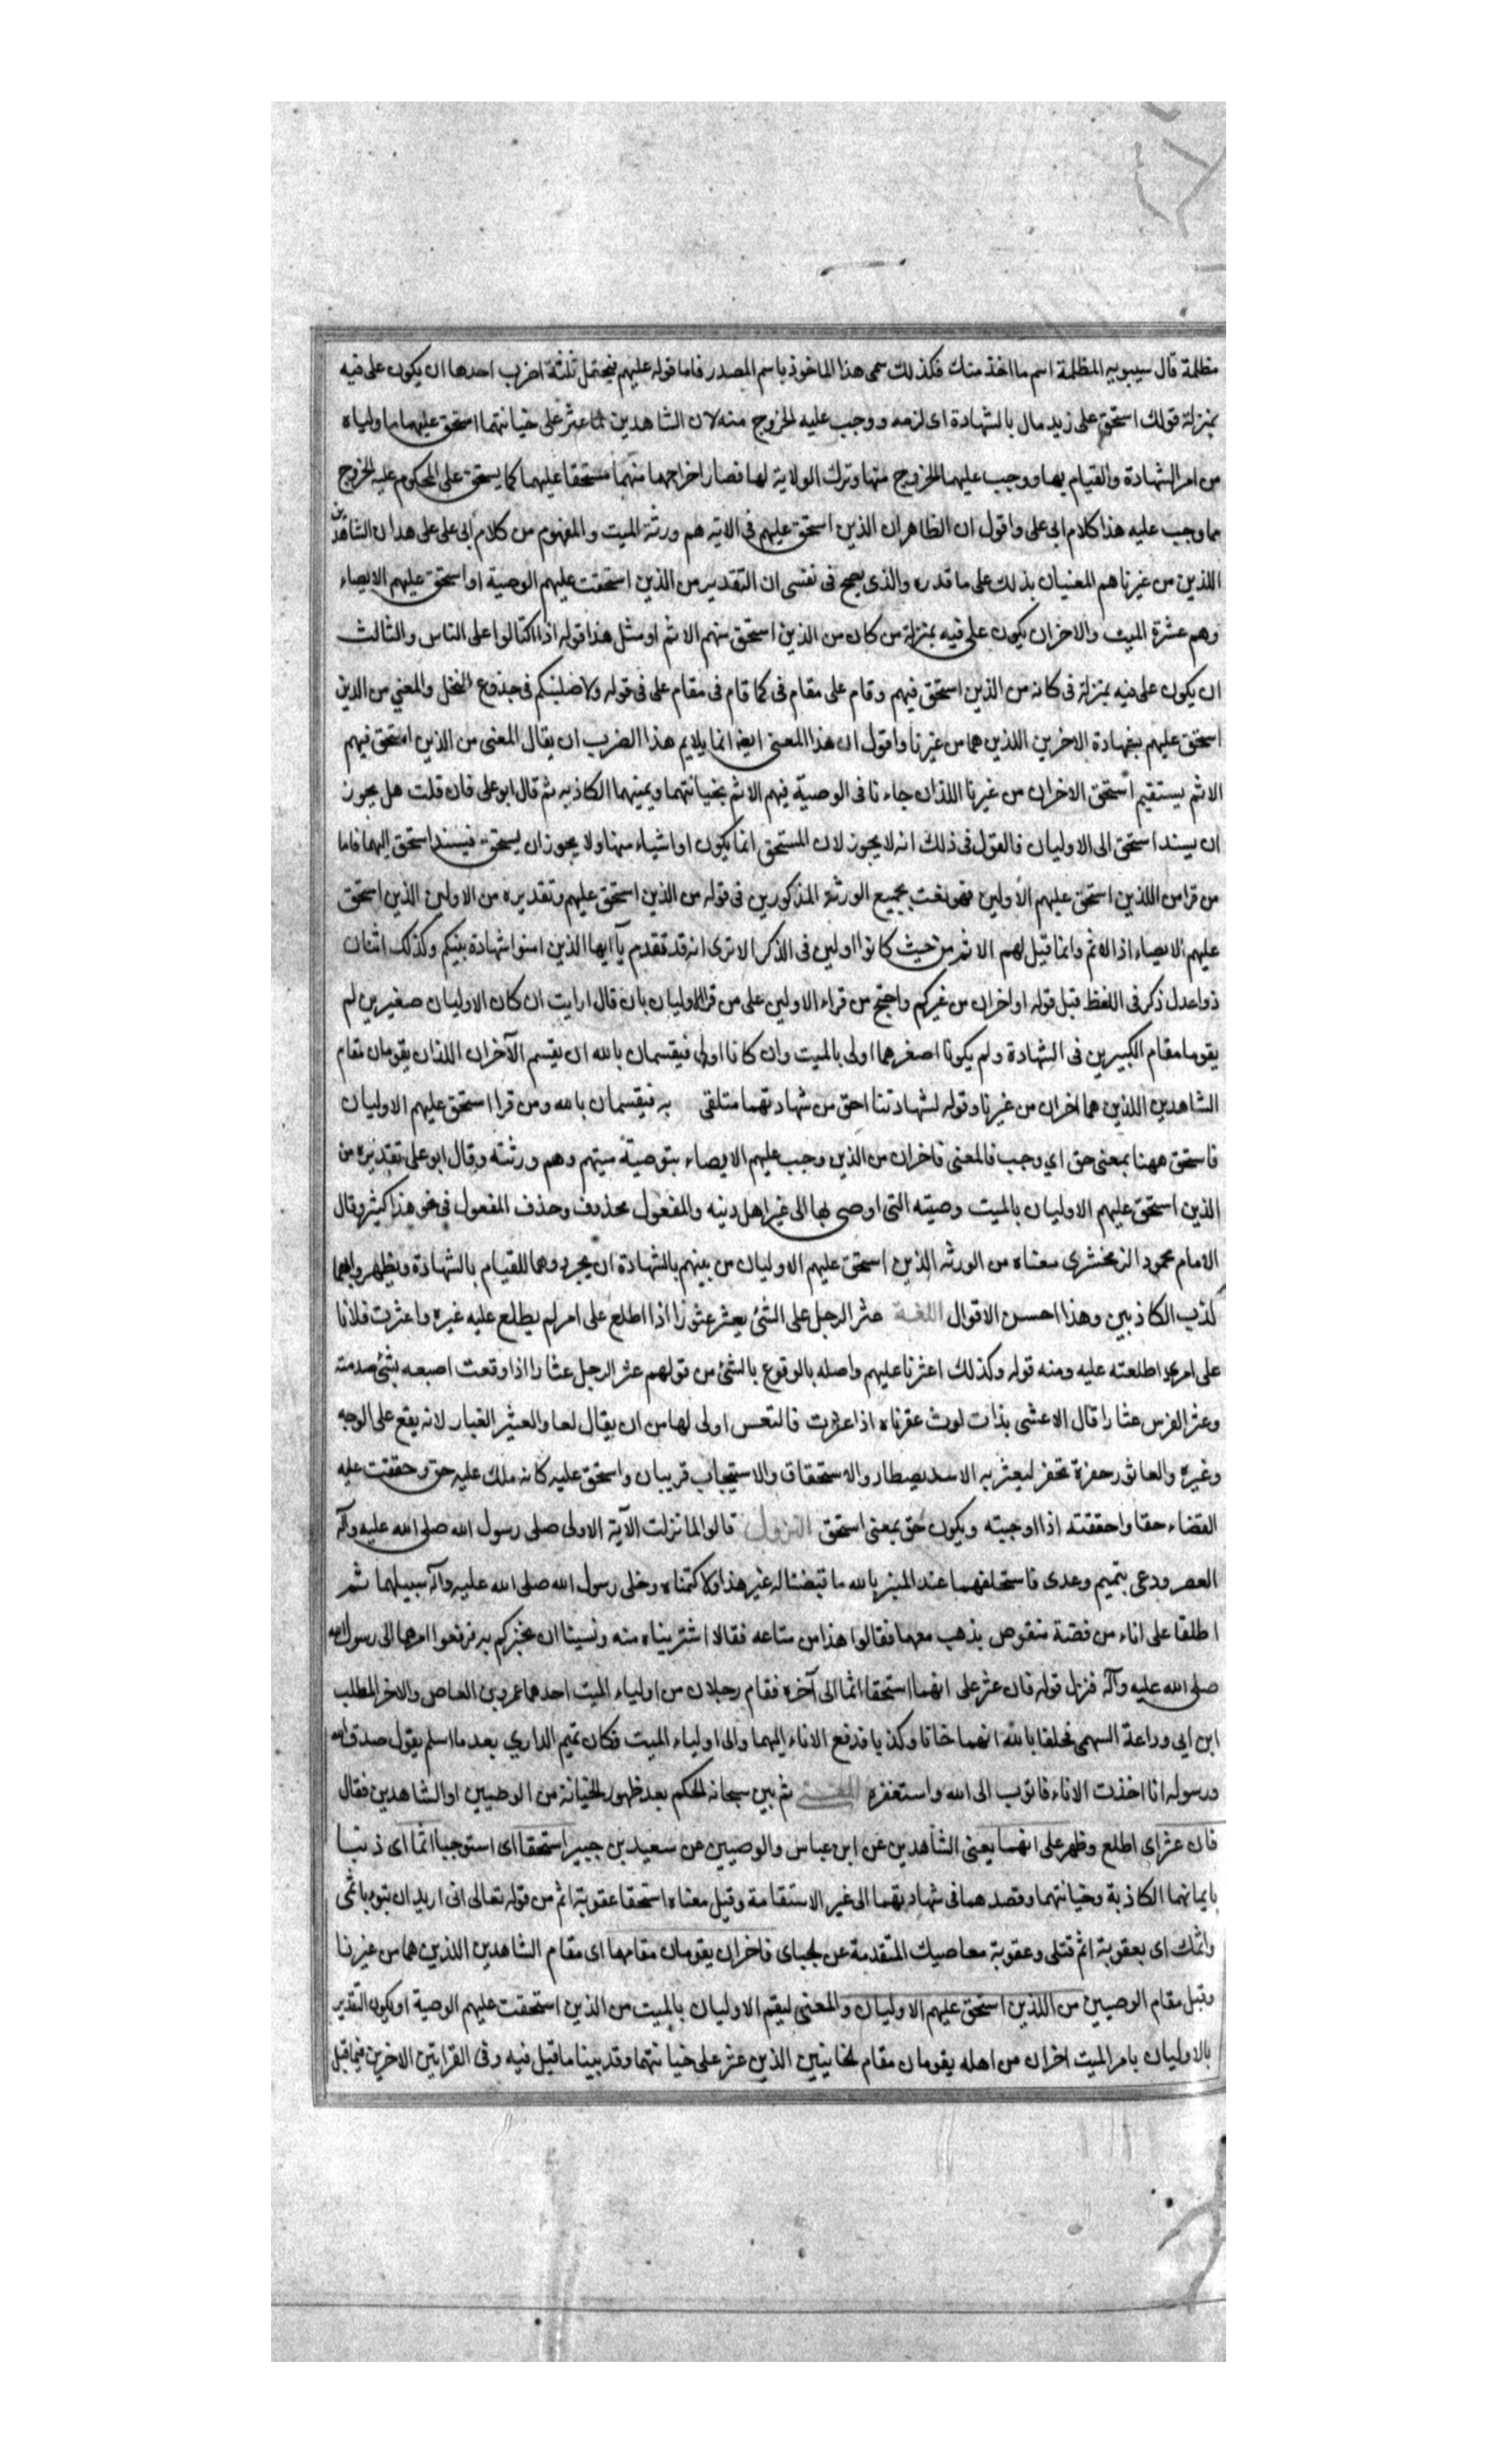 مظلمة قال سيبويه المظلمة اسم ما اخذ منك فكذلك سمى هذا الماخوذ باسم المصدر فاما قوله عليهم فيحتمل ثلثة اضرب احدها ان يكون على فيه
بمنزلة قولك استحق على زيد مال بالشهادة اى لزمه ووجب عليه الخروج منه لان الشاهدين لما عثر على خيانتهما استحق عليهما ما ولياه
من امر الشهادة والقيام بها ووجب عليهما الخروج منها وترك الولاية لها فصار اخراجهما منهما مستحقا عليهما كما يستحق على المحكوم عليه الخروج
مما وجب عليه هذا كلام ابى على واقول ان الظاهر ان الذين استحق عليهم فى الاية هم ورثة الميت والمفهوم من كلام ابى على على هدا ان الشاهدين
اللذين من غيرنا هم المعنيان بذلك على ما قدره والذى يصح فى نفسى ان التقدير من الذين استحقت عليهم الوصية او استحق عليهم الايصاء
وهم عشرة الميت والاخر ان يكون على فيه بمنزلة من كان من الذين استحق منهم الاثم او مثل هذا قوله اذا اكتالوا على الناس والثالث
ان يكون على فيه بمنزلة فى كانه من الذين استحق فيهم وقام على مقام فى كما قام فى مقام على فى قوله ولاصلبنكم فى جذوع النخل والمعني من الذين
استحق عليهم بشهادة الاخرين اللذين هما من غيرنا واقول ان هذا المعنى ايضا انما يلايم هذا الضرب ان يقال المعنى من الذين استحق فيهم
الاثم يستقيم استحق الاخران من غيرنا اللذان جاءنا فى الوصية فيهم الاثم بخيانتهما ويمينهما الكاذبه ثم قال ابو على فان قلت هل يجوز
ان يسند استحق الى الاوليان فالقول فى ذلك انه لا يجوز لان المستحق انما يكون اواشياء منها ولا يجوزان يستحق فيسند استحق اليهما فاما
من قرا من اللذين استحق عليهم الاولين فهو نعت بجميع الورثة المذكورين فى قوله من الذين استحق عليهم وتقديره من الاولين الذين استحق
عليهم الايصاء اذ الاثم وانما قيل لهم الاثم من حيث كانوا اولين فى الذكر الا ترى انه قد تقدم يآ ايها الذين امنوا شهادة بينكم وكذلك اثنان
ذواعدل ذكر فى اللفظ قبل قوله او اخران من غيركم واحتج من قراء الاولين على من قرا الاوليان بان قال ارايت ان كان الاوليان صغيرين لم
يقوما مقام الكبيرين فى الشهادة ولم يكونا اصغرهما اولى بالميت وان كانا اولى فيقسمان بالله ان يقسم الآخران اللذان يقومان مقام
الشاهدين اللذين هما اخران من غيرنا وقوله لشهادتنا احق من شهادتهما متلقى به فيقسمان بالله ومن قرا استحق عليهم الاوليان
فاستحق ههنا بمعنى حق اي وجب فالمعنى فاخران من الذين وجب عليهم الايصاء بتوصية ميتهم وهم ورثته وقال ابو على تقديره من
الذين استحق عليهم الاوليان بالميت وصيته التى اوصى بها الى غير اهل دينه والمفعول محذوف وحذف المفعول فى نحو هذا كثير وقال
الامام محمود الزمخشرى معناه من الورثه الذين استحق عليهم الاوليان من بينهم بالشهادة ان يجردوهما للقيام بالشهادة ويظهروا بهما
كذب الكاذبين وهذا احسن الاقوال اللغة عثر الرجل على الشئ يعثر عثورا اذا اطلع على امر لم يطلع عليه غيره واعثرت فلانا
على امرى اطلعته عليه ومنه قوله وكذلك اعثرنا عليهم واصله بالوقوع بالشئ من قولهم عثر الرجل عثارا اذا وقعت اصبعه بشئ صدمته
وعثر الفرس عثارا قال الاعشى بذات لوث عفرناه اذا عثرت فالتعس اولى لها من ان يقال لعا والعثير الغبار لانه يقع على الوجه
وغيره والعاثور حفرة تحفر ليعثر به الاسد يصطار والاستحقاق والاستيجاب قريبان واستحق عليه كانه ملك عليه حق وحققت عليه
القضاء حقا واحققته اذا اوجبته ويكون حق بمعنى استحق النزول قالوا لما نزلت الآية الاولى صلى رسول الله صلى الله عليه وآله
العصر ودعى بتميم وعدى فاستحلفهما عند المنبر بالله ما قبضنا له غير هذا ولا كتمناه وخلى رسول الله صلى الله عليه وآله سبيلهما ثم
اطلقا على اناء من فضة منقوص بذهب معهما فقالوا هذا من متاعه فقالا اشتريناه منه ونسينا ان نخبركم به فرفعوا امرهما الى رسول الله
صلى الله عليه وآله فنزل قوله فان عثر على انهما استحقا اثما الى آخره فقام رجلان من اولياء الميت احدهما عمرو بن العاص والاخر المطلب
ابن ابى وداعة السهمى فحلفا بالله انهما خانا وكذبا فدفع الاناء اليهما والى اولياء الميت فكان تميم الداري بعد ما اسلم يقول صدق الله
ورسوله انا اخذت الاناء فاتوب الى الله واستغفره المعنى ثم بين سبحانه الحكم بعد ظهور الخيانة من الوصيين او الشاهدين فقال
فان عثر اى اطلع وظهر على انهما يعنى الشاهدين عن ابن عباس والوصيين عن سعيد بن جبير استحقا اى استوجبا اثما اى ذنبا
بايمانهما الكاذبة وخيانتهما وقصدهما فى شهادتهما الى غير الاستقامة وقيل معناه استحقا عقوبة اثم من قوله تعالى انى اريد ان تبوء باثمى
واثمك اى بعقوبة اثم قتلى وعقوبة معاصيك المتقدمة عن الجباى فاخران يقومان مقامهما اى مقام الشاهدين اللذين هما من غيرنا
وقيل مقام الوصيين من اللذين استحق عليهم الاوليان والمعنى ليقم الاوليان بالميت من الذين استحقت عليهم الوصية او يكون التقدير
بالاوليان بامر الميت اخران من اهله يقومان مقام الخاينين الذين عثر على خيانتهما وقد بينا ما قيل فيه وفى القرايتين الاخرين فيما قبل